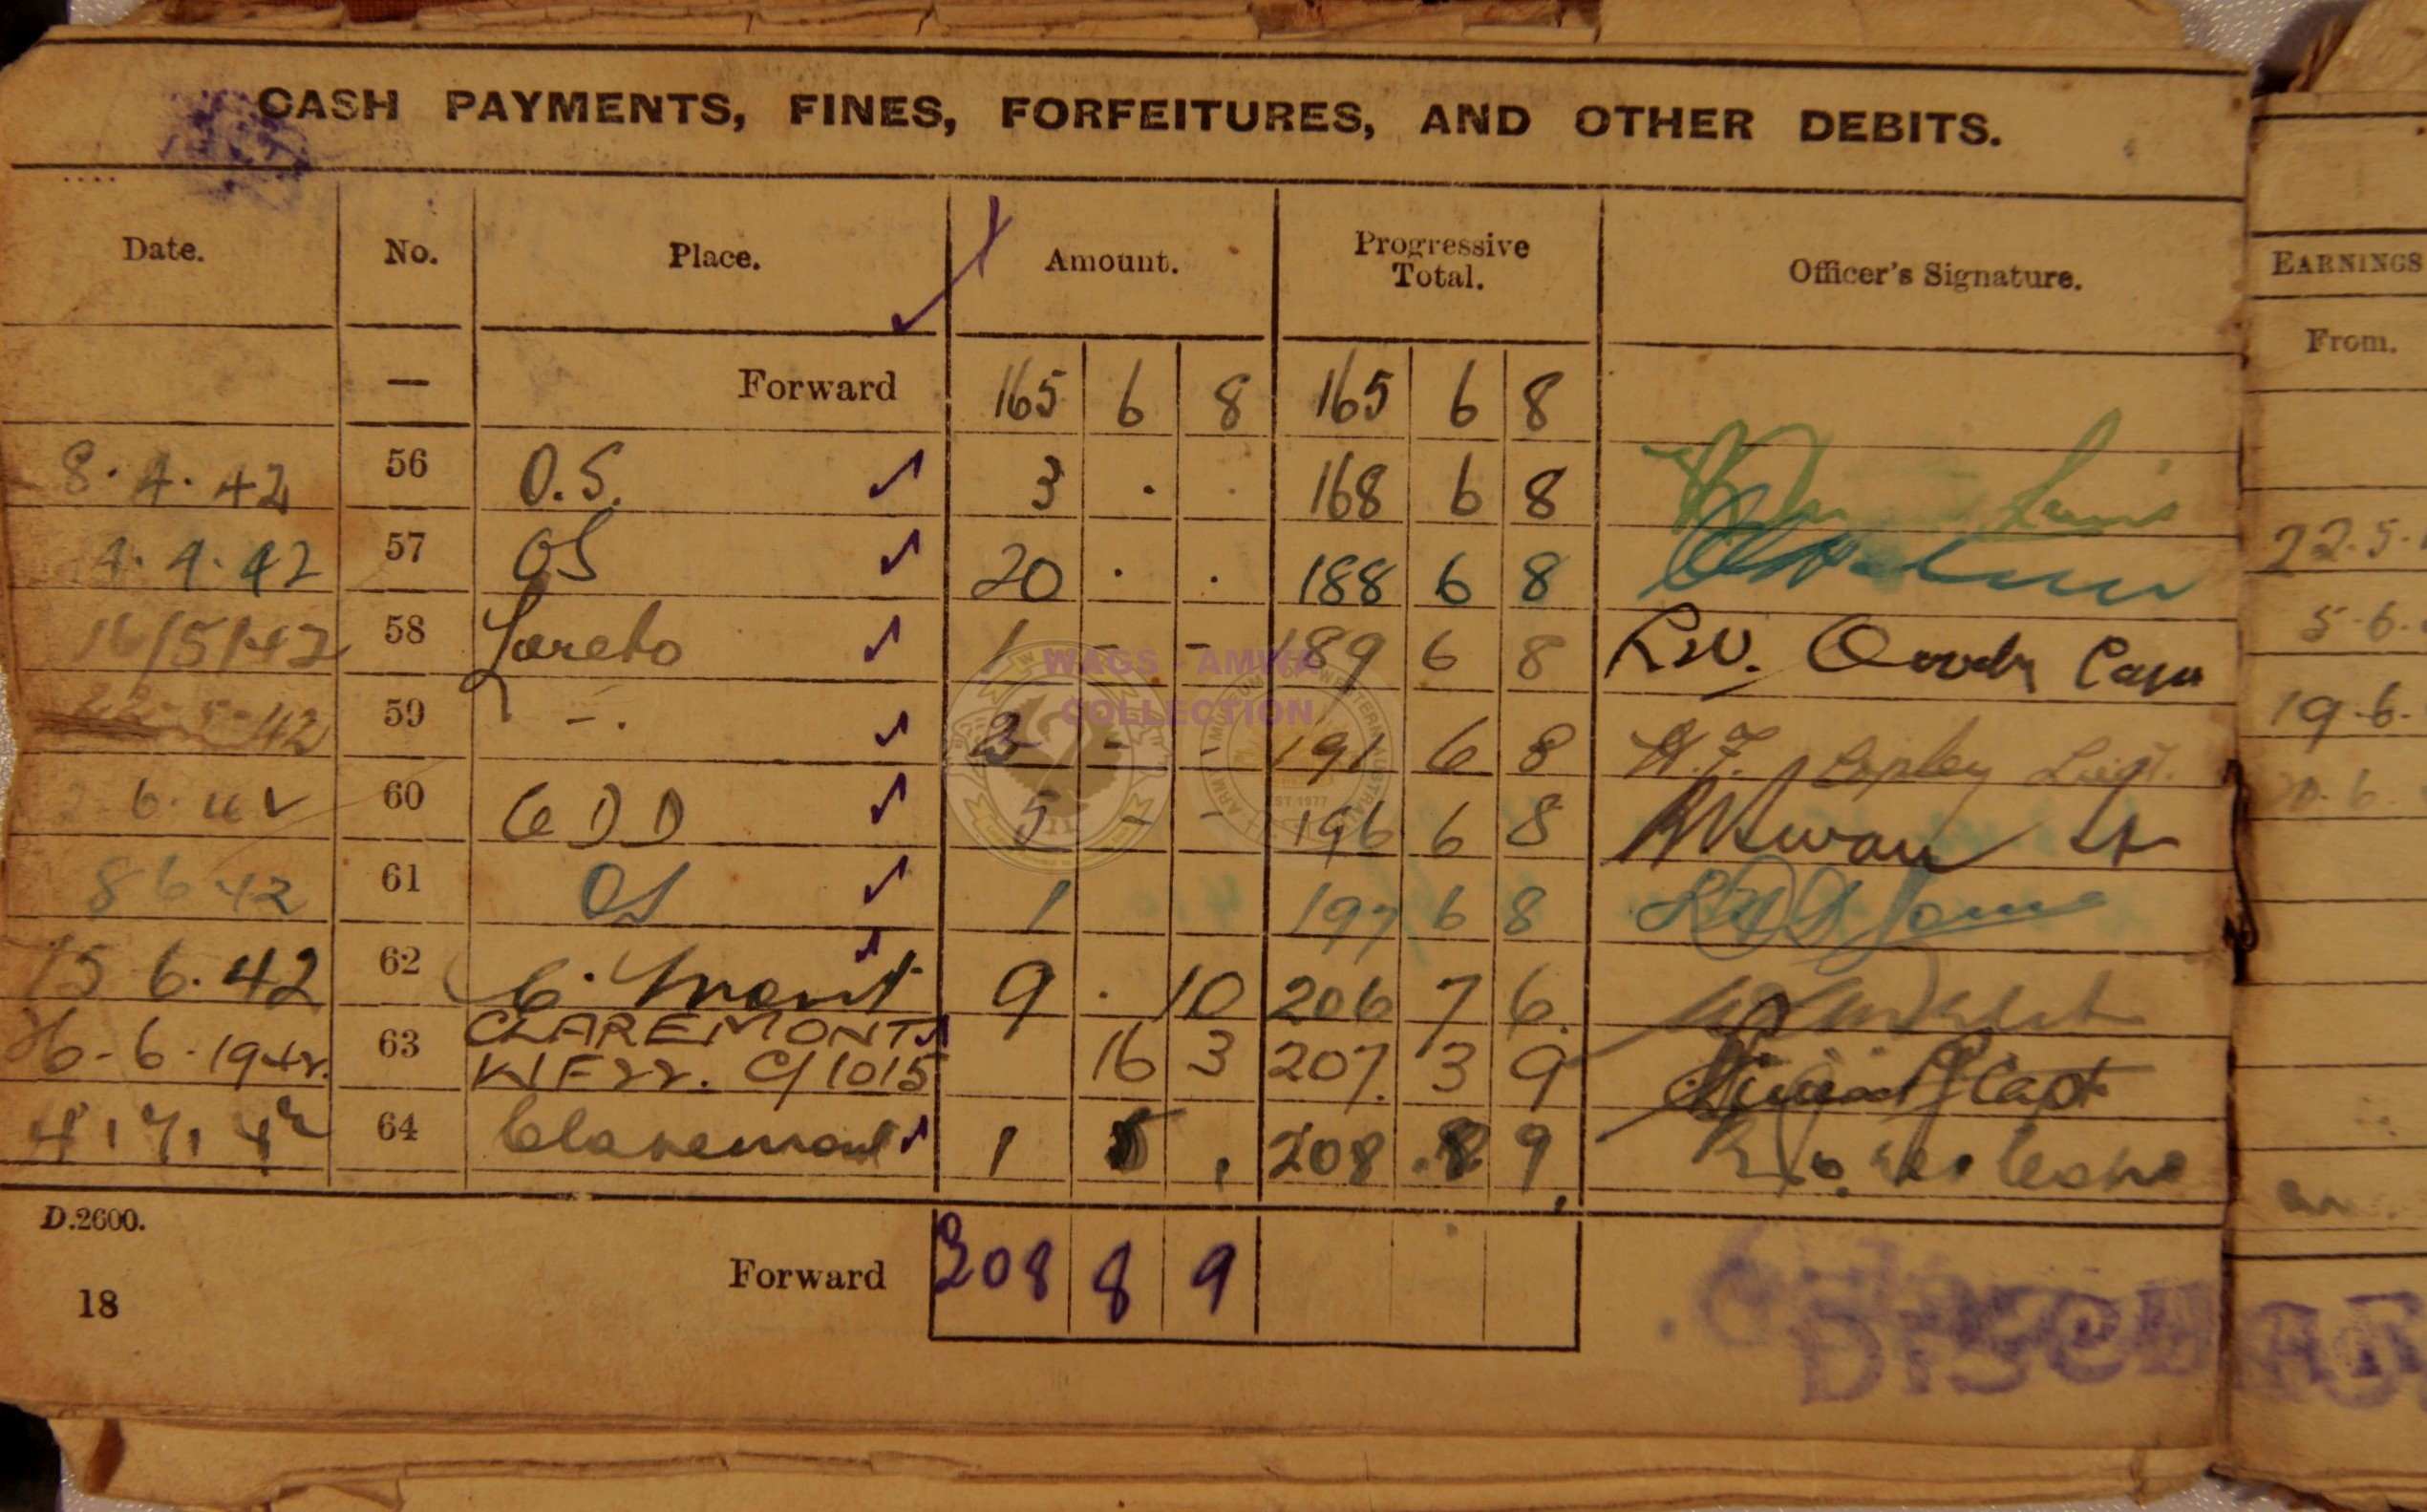 CASH PAYMENTS, FINES, FORFEITURES, AND OTHER DEBITS.
Date. No. Place. Amount. Progressive Total. Officer's Signature.
— Forward 165 6 8 165 6 8
8.4.42 56 O.S. 3 . . 168 6 8
4.4.42 57 OS 20 . . 188 6 8
16/5/42 58 Loreto 1 - - 189 6 8 Capt
5-42 59 - . 2 - - 191 6 8 H.F. Copley Lieut.
6.42 60 GDD 5 - - 196 6 8 Lt
8 6 42 61 OS 1 197 6 8
15 6.42 62 C.Mont 9 . 10 206 7 6.
26-6-1942. 63 CLAREMONT 16 3 207. 3 9 Capt
WF22. C/1015
4.7.42 64 Claremont 1 5 . 208 8 9
D.2600.
Forward 208 8 9
18
DISCHAR
EARNINGS
From.
22.5.
5-6.
19-6.
20.6.
WAGS - AMWA
COLLECTION